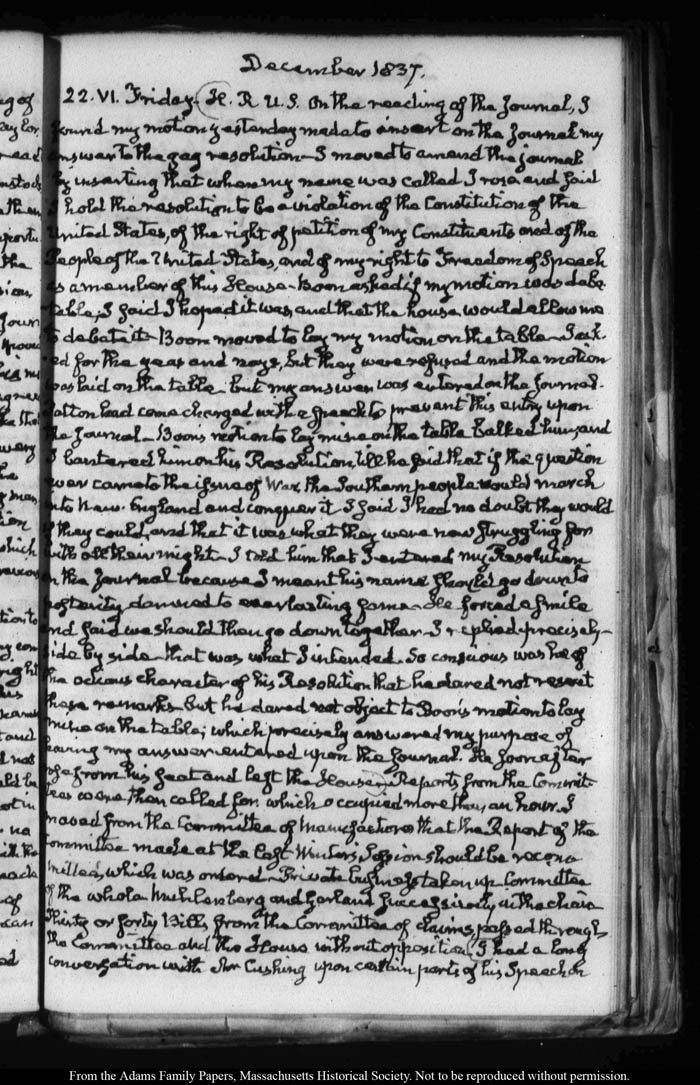 December 1837.
22. VI. Friday. H. R. U. S. On the reading of the Journal, I
found my motion yesterday made to insert on the Journal my
answer to the gag resolution— I moved to amend the Journal
by inserting that when my name was called I rose and said
I hold the resolution to be a violation of the Constitution of the
United States, of the right of petition of my Constituents and of the
People of the United States, and of my right to Freedom of Speech
as a member of this House— Boon asked if my motion was deba
table; I said I hoped it was, and that the house would allow me
to debate it— Boon moved to lay my motion on the table— I ask-
ed for the yeas and nays, but they were refused and the motion
was laid on the table— but my answer was entered on the Journal.
Patton had come charged with a speech to prevent this entry upon
the Journal— Boon's motion to lay mine on the table balked him, and
I bantered him on his Resolution till he said that if the question
ever came to the issue of War, the Southern people would march
into New-England and conquer it. I said I had no doubt they would
if they could, and that it was what they were now struggling for
with all their might— I told him that I entered my Resolution
on the Journal because I meant his name should go down to
posterity damned to everlasting fame— He forced a smile
and said we should then go down together— I replied precisely—
side by side— that was what I intended. So conscious was he of
the odious character of his Resolution that he dared not resent
these remarks but he dared not object to Boon's motion to lay
mine on the table; which precisely answered my purpose of
having my answer entered upon the Journal. He soon after
rose from his seat and left the House— Reports from the Commit-
tees were then called for which occupied more than an hour. I
moved from the Committee of Manufactures that the Report of the
Committee made at the last Winter's Session should be recom
mitted, which was ordered— Private business taken up Committee
of the whole Muhlenberg and Garland successively in the chair
Thirty or forty Bills from the Committee of claims passed through
the Committee and the House without opposition. I had a long
conversation with Mr Cushing upon certain parts of his Speech on
From the Adams Family Papers, Massachusetts Historical Society. Not to be reproduced without permission.